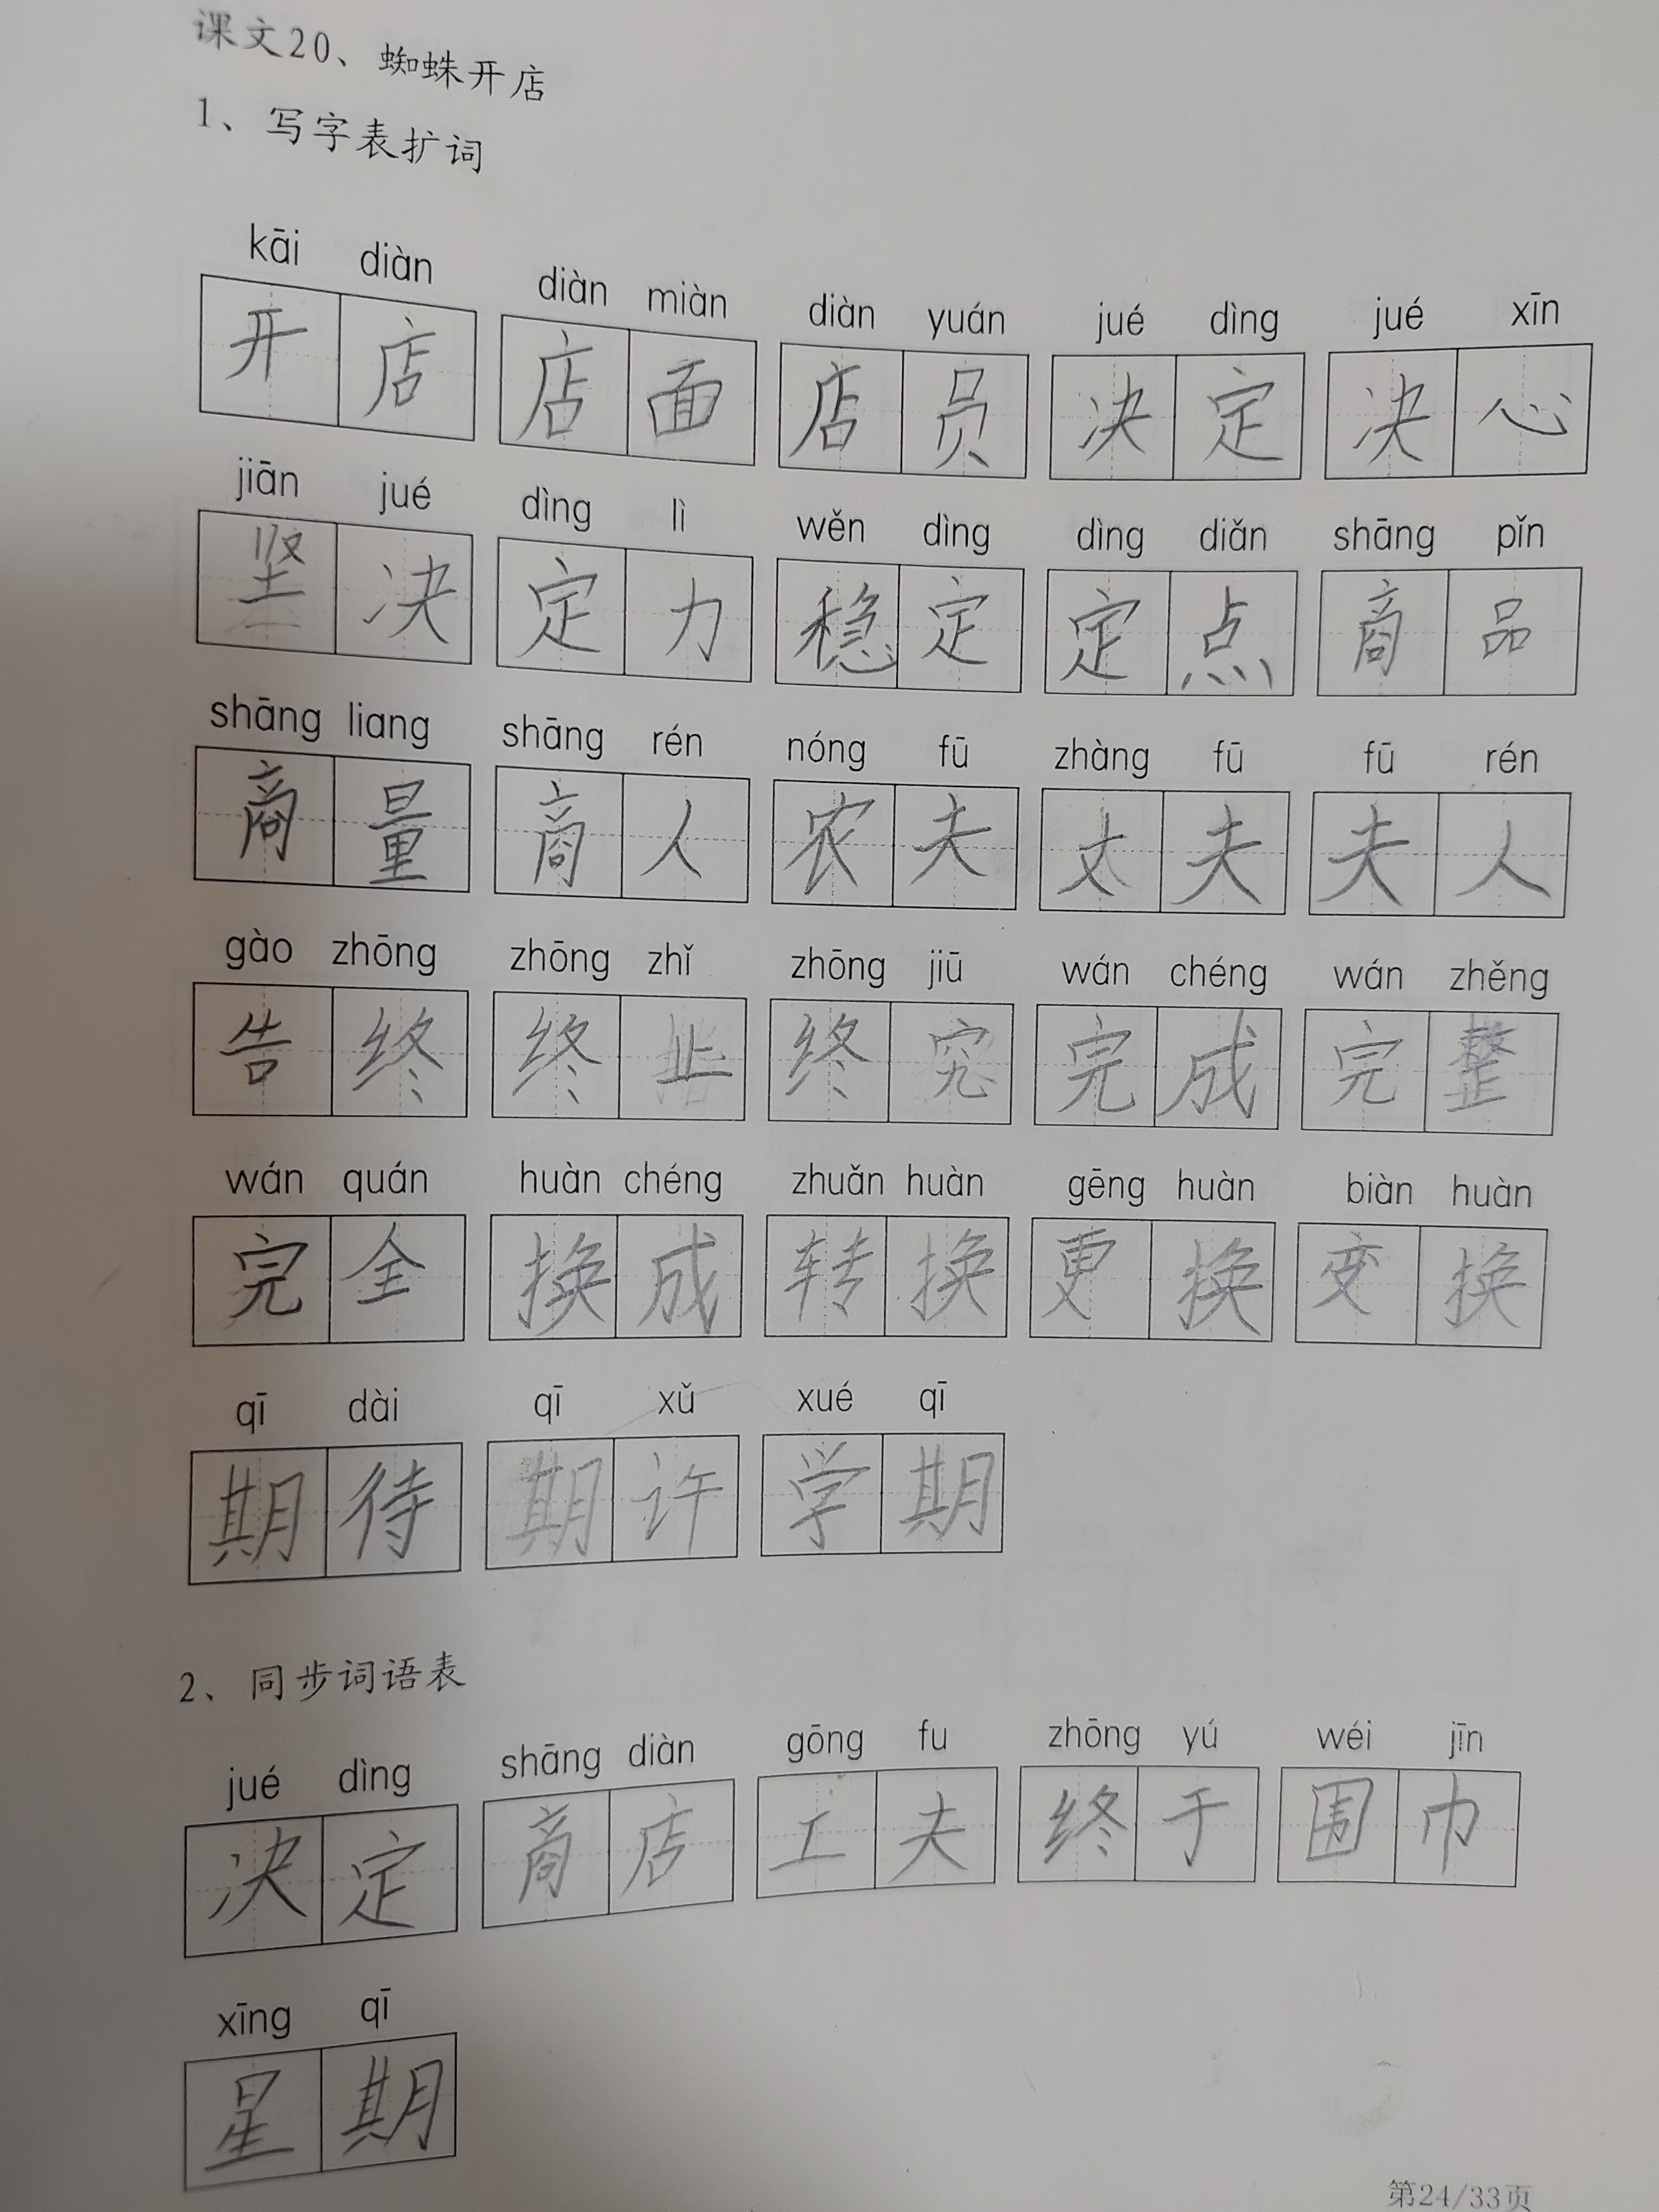 课文20、蜘蛛开店
1、写字表扩词
kāi diàn diàn miàn diàn yuán jué dìng jué xīn
开店 店面 店员 决定 决心
jiān jué dìng lì wěn dìng dìng diǎn shāng pǐn
坚决 定力 稳定 定点 商品
shāng liang shāng rén nóng fū zhàng fū fū rén
商量 商人 农夫 丈夫 夫人
gào zhōng zhōng zhǐ zhōng jiū wán chéng wán zhěng
告终 终止 终究 完成 完整
wán quán huàn chéng zhuǎn huàn gēng huàn biàn huàn
完全 换成 转换 更换 变换
qī dài qī xǔ xué qī
期待 期许 学期
2、同步词语表
jué dìng shāng diàn gōng fu zhōng yú wéi jīn
决定 商店 工夫 终于 围巾
xīng qī
星期
第24/33页